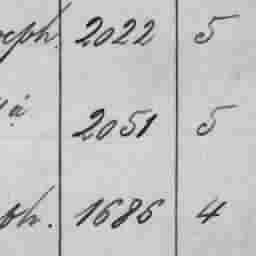 eph. 2022 5
a 2051 5
ph. 1686 4